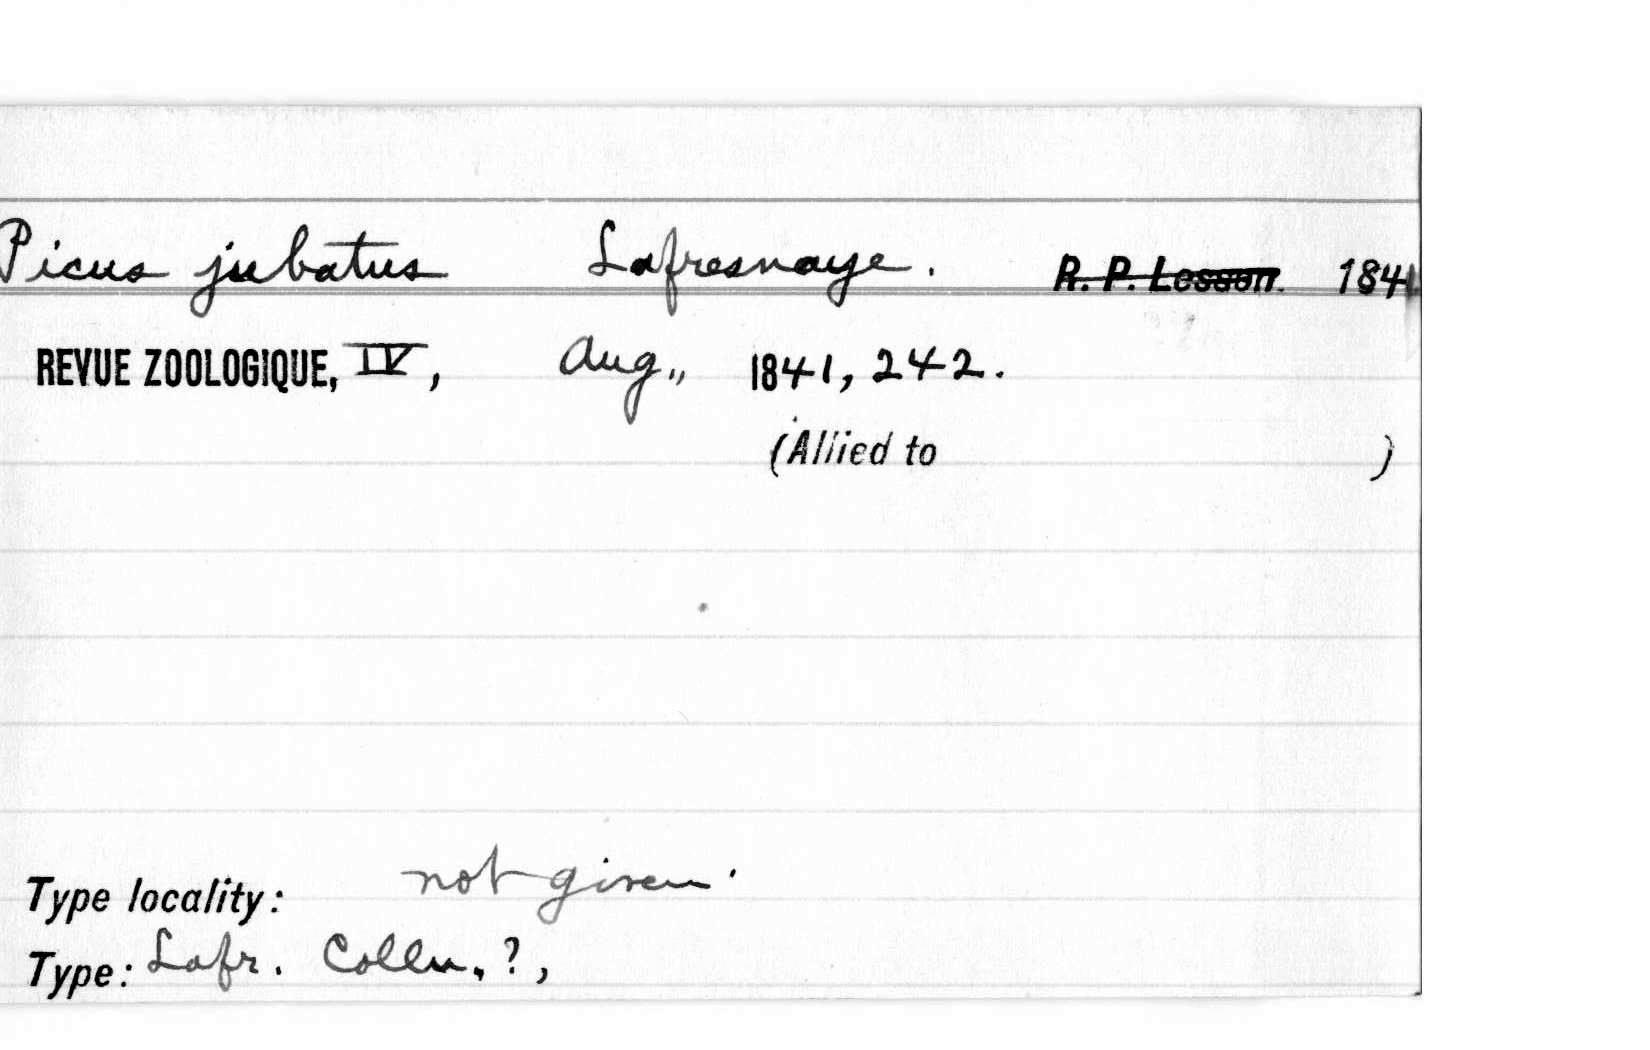 Picus jubatus Lafresnaye. R. P. Lesson. 1841.
REVUE ZOOLOGIQUE, IV, Aug., 1841, 242.
(Allied to )
Type locality: not given.
Type: Lafr. Colln. ?,